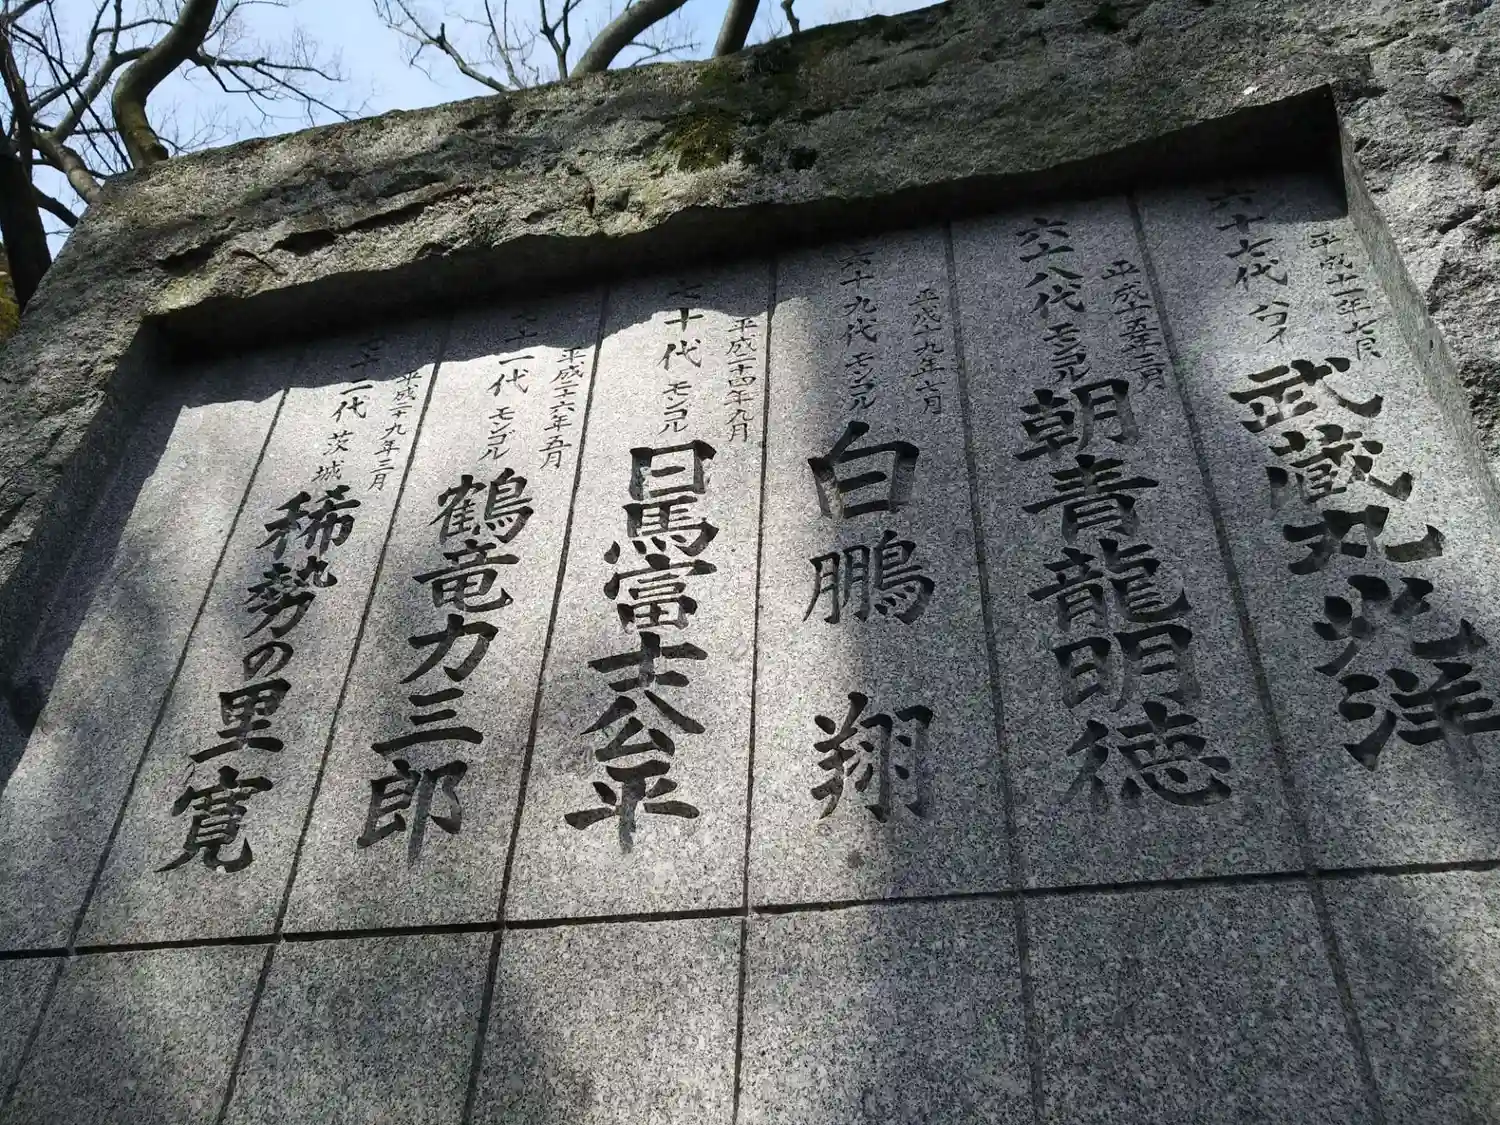 平成十一年七月
六十七代 ハワイ 武蔵丸光洋
平成十五年三月
六十八代 モンゴル 朝青龍明徳
平成十九年六月
六十九代 モンゴル 白鵬翔
平成二十四年九月
七十代 モンゴル 日馬富士公平
平成二十六年五月
七十一代 モンゴル 鶴竜力三郎
平成二十九年三月
七十二代 茨城 稀勢の里寛